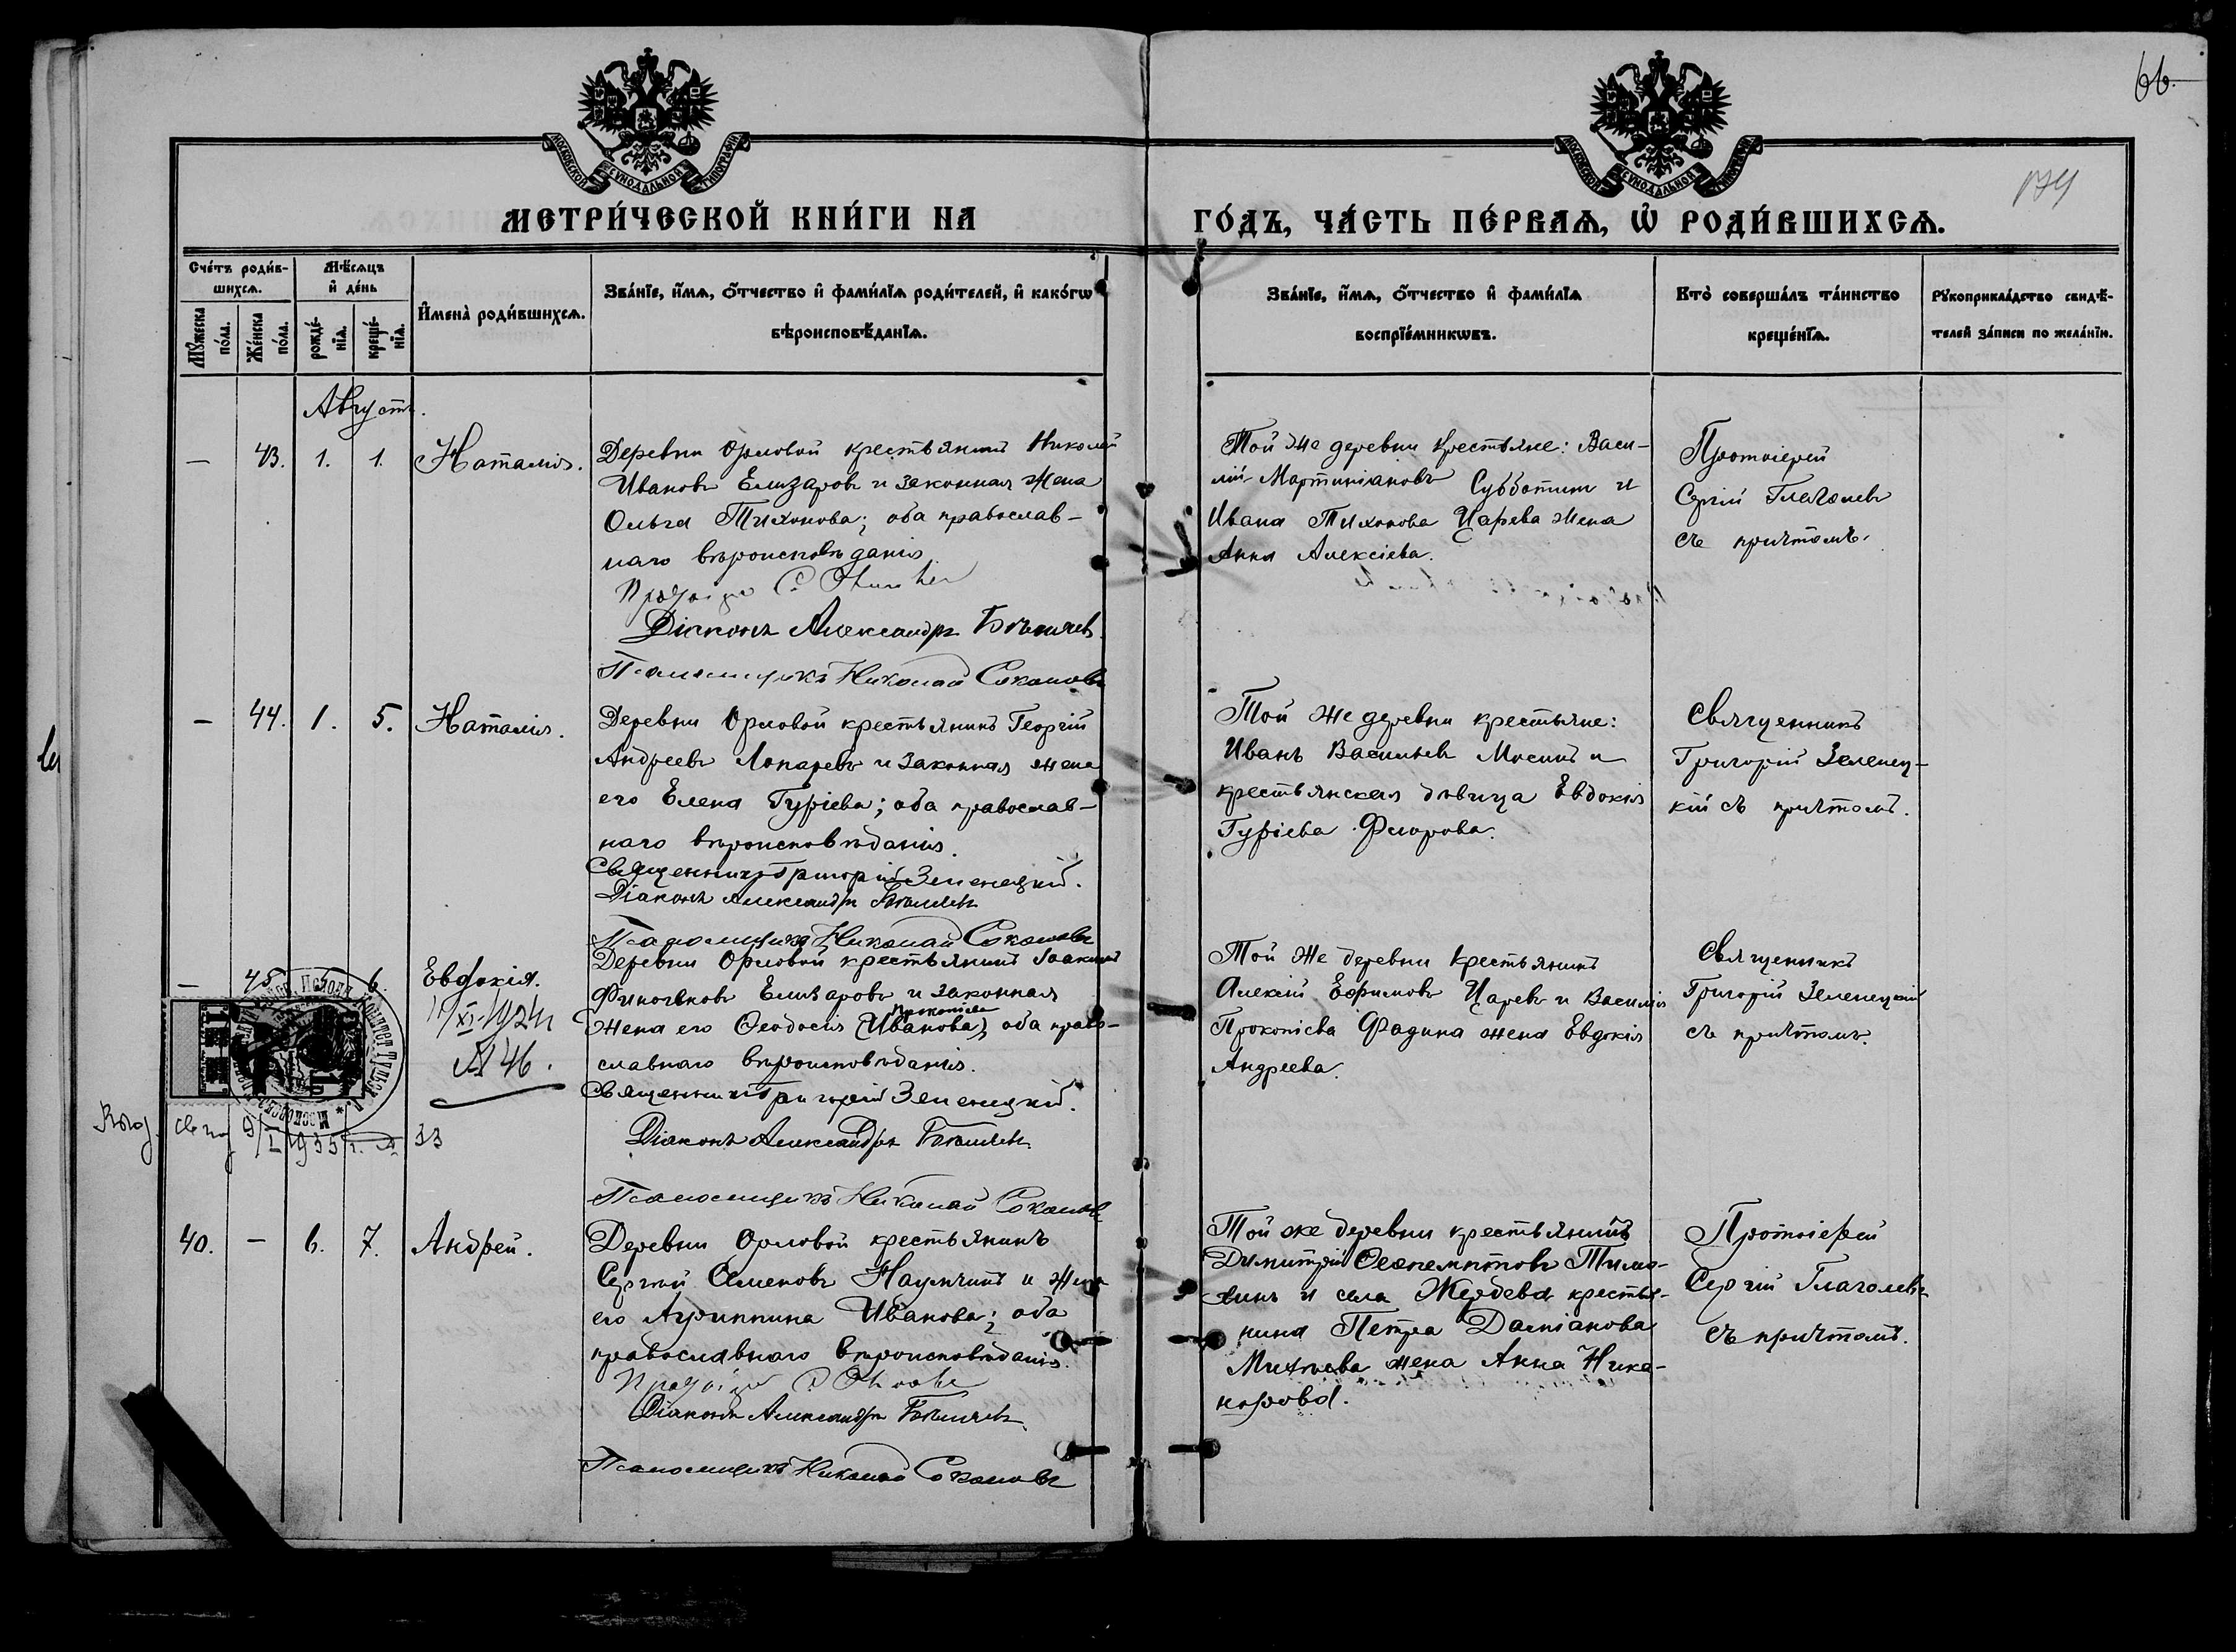 66.
174
МОСКОВСКОЙ СѴНОДАЛЬНОЙ ТИПОГРАФІИ
МОСКОВСКОЙ СѴНОДАЛЬНОЙ ТИПОГРАФІИ
МЕТРИ́ЧЕСКОЙ КНИ́ГИ НА ГО́ДЪ, ЧА́СТЬ ПЕ́РВАѦ, Ѡ҆ РОДИ́ВШИХСѦ.
Сче́тъ роди́в-
шихсѧ.
Мѣ́сѧцъ
и҆ де́нь
Мꙋ́жеска по́ла.
Же́нска по́ла.
рожде́-
нїѧ.
креще́-
нїѧ.
И҆мена̀ роди́вшихсѧ.
Зва́нїе, и҆́мѧ, ѻ҆́тчество и҆ фами́лїѧ роди́телей, и҆ како́гѡ
вѣроисповѣ́данїѧ.
Зва́нїе, и҆́мѧ, ѻ҆́тчество и҆ фами́лїѧ
воспрїе́мникѡвъ.
Кто̀ соверша́лъ та́инство
креще́нїѧ.
Рꙋкоприкла́дство свидѣ́-
телей за́писи по жела́нїю.
Августъ.
— 43. 1. 1. Наталія.
Деревни Орловой крестьянинъ Николай
Ивановъ Елизаровъ и законная жена
Ольга Тихонова; оба православ-
наго вѣроисповѣданія
Діаконъ Александръ Бѣляевъ.
Псаломщикъ Николай Соколовъ
Той же деревни крестьяне: Васи-
лій Мартиніановъ Субботин и
Ивана Тихонова Царева жена
Анна Алексіева.
Протоіерей
Сергій Глаголевъ
съ причтомъ.
— 44. 1. 5. Наталія.
Деревни Орловой крестьянинъ Георгій
Андреевъ Лопаревъ и законная жена
его Елена Гуріева; оба православ-
наго вѣроисповѣданія.
Священникъ Григорій Зеленецкій.
Діаконъ Александръ Бѣляевъ
Псаломщикъ Николай Соколовъ
Той же деревни крестьяне:
Иванъ Васильевъ Мосинъ и
крестьянская дѣвица Евдокія
Гуріева Фролова.
Священникъ
Григорій Зеленец-
кій съ причтомъ.
— 45 6. Евдокія.
XI-1924
№ 46.
Деревни Орловой крестьянинъ Іоакимъ
Финогеновъ Елизаровъ и законная
Прокопіева
жена его Ѳеодосія (Иванова); оба право-
славнаго вѣроисповѣданія.
Священникъ Григорій Зеленецкій.
Діаконъ Александръ Бѣляевъ
Псаломщикъ Николай Соколовъ
Той же деревни крестьянинъ
Алексій Ефимовъ Царевъ и Василія
Прокопіева Фадина жена Евдокія
Андреева.
Священникъ
Григорій Зеленецкій
съ причтомъ.
9/I 1935 г. № 33
40. — 6. 7. Андрей.
Деревни Орловой крестьянинъ
Сергій Семеновъ Наумчинъ и жена
его Агриппина Иванова; оба
православнаго вѣроисповѣданія.
Діаконъ Александръ Бѣляевъ
Псаломщикъ Николай Соколовъ
Той же деревни крестьянинъ
Димитрій Ѳеопемптовъ Тимо-
хинъ и села Жердева крестья-
нина Петра Даміанова
Михѣева жена Анна Ника-
норова.
Протоіерей
Сергій Глаголевъ
съ причтомъ.